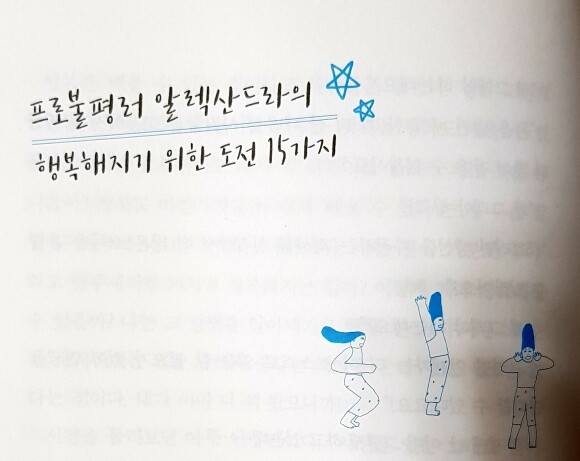 프로불평러 알렉산드라의
행복해지기 위한 도전 15가지